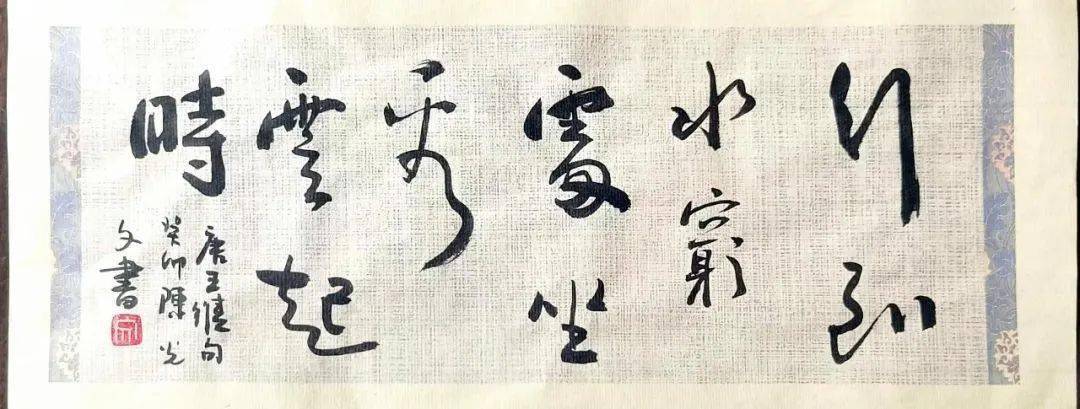 行到
水窮
處坐
看
雲起
時
唐王維句
癸卯陳光
文書